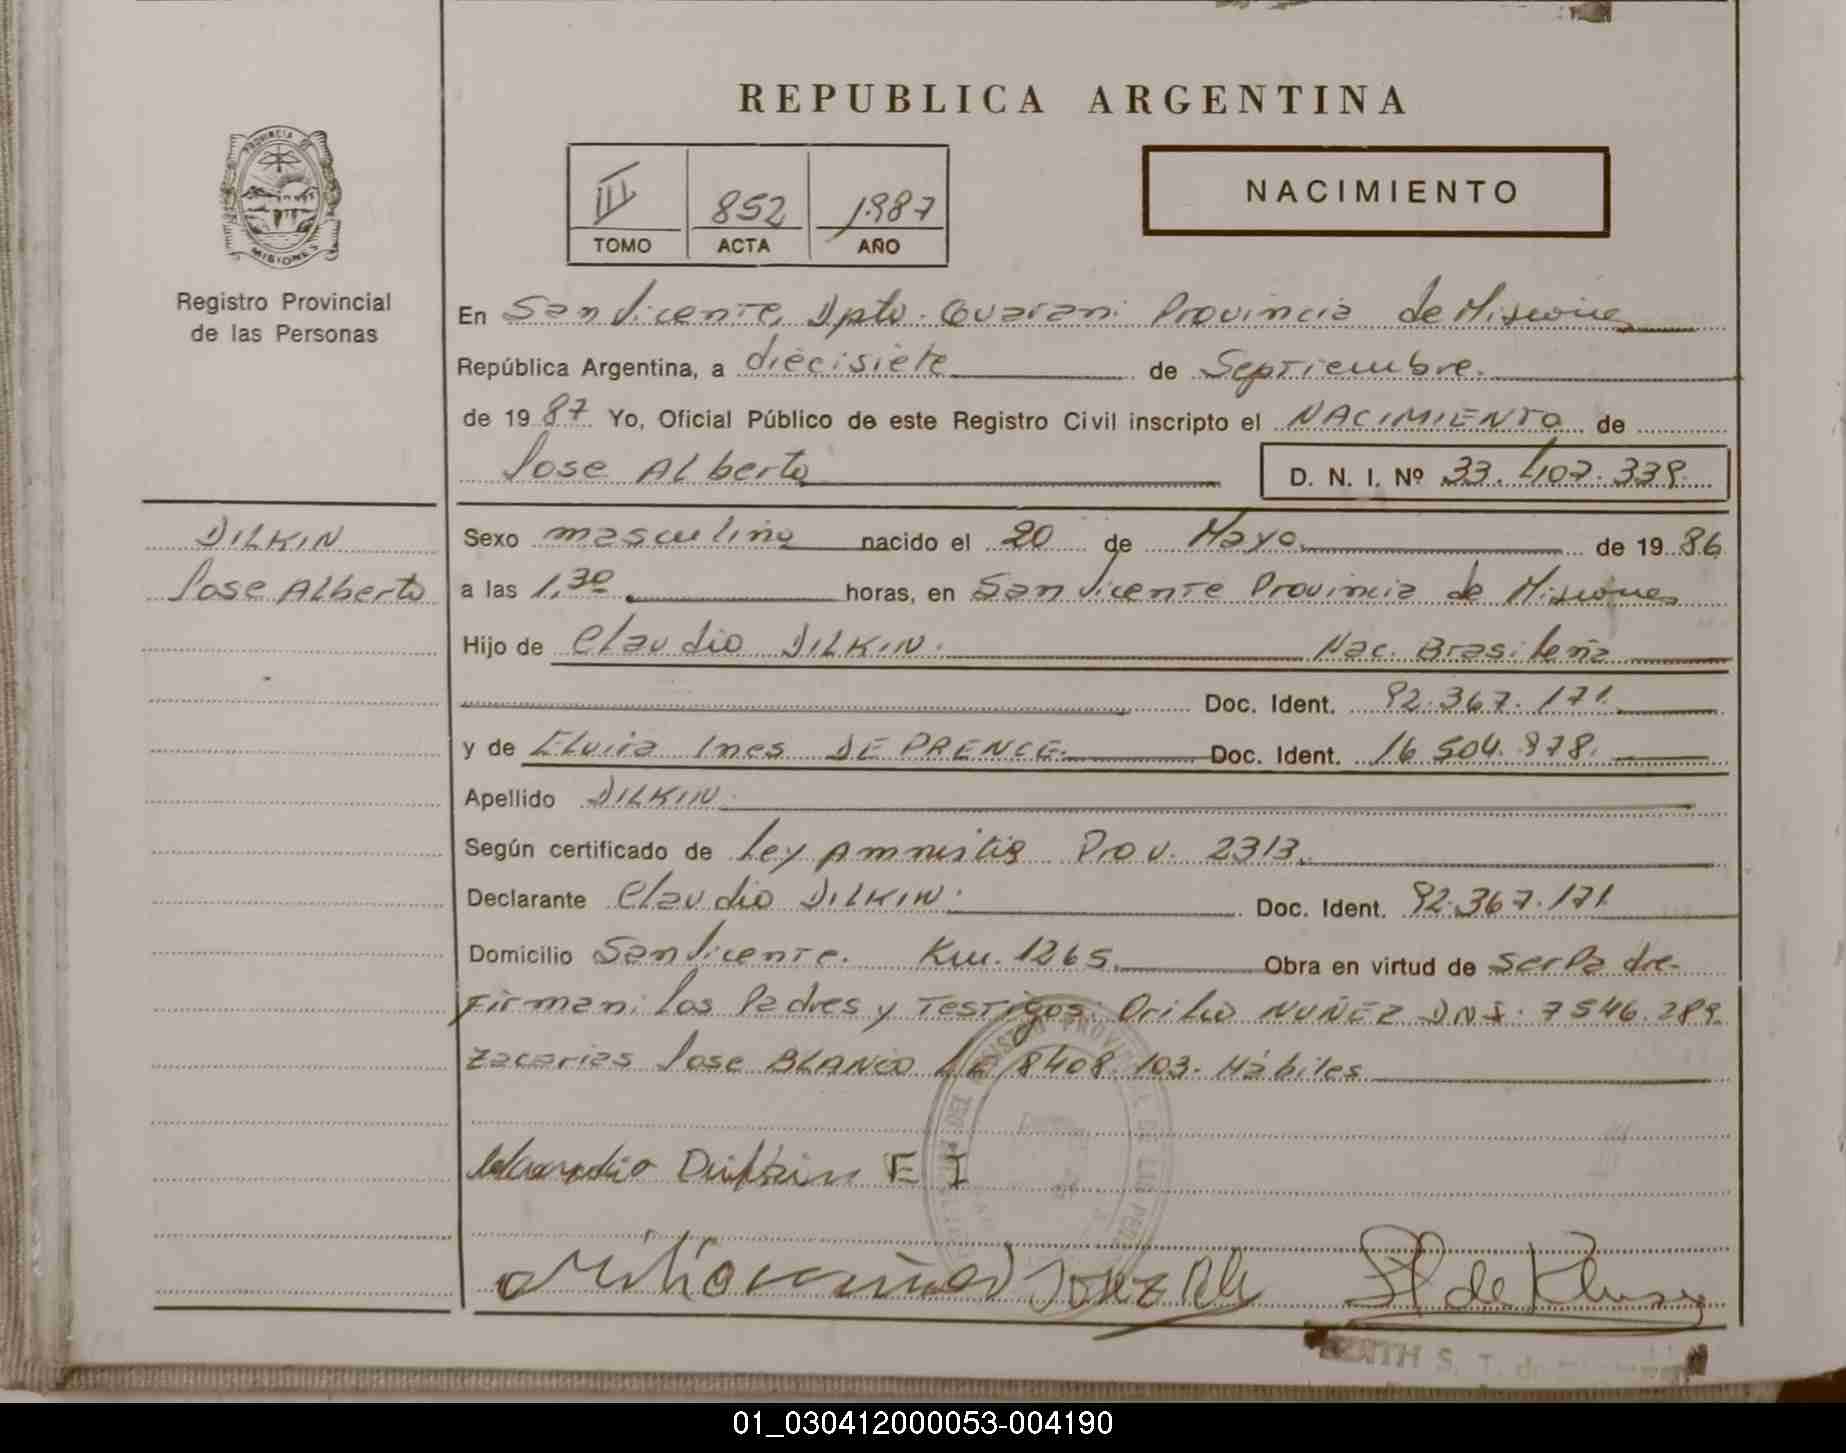 REPUBLICA ARGENTINA
PROVINCIA DE
MISIONES
Registro Provincial
de las Personas
III 852 1987
TOMO ACTA AÑO
NACIMIENTO
En San Vicente, Dpto. Guarani Provincia de Misiones
República Argentina, a diecisiete de Septiembre.
de 1987 Yo, Oficial Público de este Registro Civil inscripto el NACIMIENTO de
Jose Alberto D. N. I. Nº 33.407.339.
DILKIN
Jose Alberto
Sexo masculino nacido el 20 de Mayo de 1986
a las 1,30 horas, en San Vicente Provincia de Misiones
Hijo de Claudio DILKIN. Nac. Brasileña
Doc. Ident. 92.367.171.
y de Elvira Ines DE PRENCE. Doc. Ident. 16 504.978.
Apellido DILKIN.
Según certificado de Ley Amnistia Prov. 2313.
Declarante Claudio DILKIN. Doc. Ident. 92.367.171
Domicilio San Vicente. Km. 1265. Obra en virtud de ser Padre-
Firman: los Padres y Testigos: Orilio NUÑEZ DNI. 7546.289.
Zacarias Jose BLANCO LE 8408.103. Hábiles
Claudio Dilkin E I
S. T. de
01_030412000053-004190